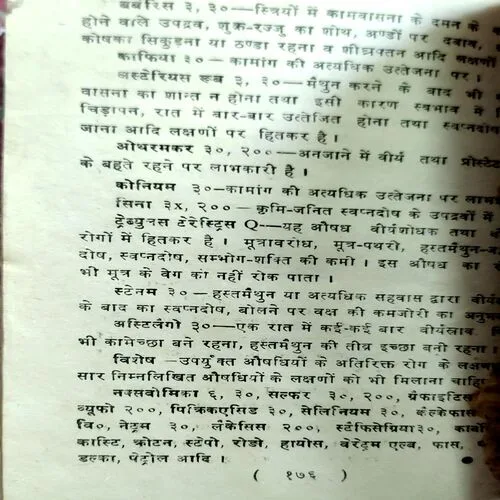 बर्बेरिस ३, ३०—स्त्रियों में कामवासना के दमन के
होने वाले उपद्रव, शुक्र-रज्जु का शोथ, अण्डों पर दबाव,
कोषका सिकुड़ना या ठण्डा रहना व शीघ्रपतन आदि लक्षणों
काफिया ३०—कामांग की अत्यधिक उत्तेजना पर ।
अस्टेरियस रूब ३, ३०—मैथुन करने के बाद भी
वासना का शान्त न होना तथा इसी कारण स्वभाव में
चिड़ापन, रात में बार-बार उत्तेजित होना तथा स्वप्नदोष
जाना आदि लक्षणों पर हितकर है ।
ओथरमकर ३०, २००—अनजाने में वीर्य तथा प्रोस्टेट
के बहते रहने पर लाभकारी है ।
कोनियम ३०—कामांग की अत्यधिक उत्तेजना पर
सिना ३x, २००—कृमि-जनित स्वप्नदोष के उपद्रवों में
ट्रेब्युनस टेरेस्ट्रिस Q—यह औषध वीर्यशोधक तथा
रोगों में हितकर है । मूत्रावरोध, मूत्र-पथरी, हस्तमैथुन-
दोष, स्वप्नदोष, सम्भोग-शक्ति की कमी । इस औषध का
भी मूत्र के वेग को नहीं रोक पाता ।
स्टेनम ३०—हस्तमैथुन या अत्यधिक सहवास द्वारा
के बाद का स्वप्नदोष, बोलने पर वक्ष की कमजोरी का
अस्टिलैगो ३०—एक रात में कई-कई बार वीर्यस्राव,
भी कामेच्छा बने रहना, हस्तमैथुन की तीव्र इच्छा बनी रहना ।
विशेष—उपर्युक्त औषधियों के अतिरिक्त रोग के
सार निम्नलिखित औषधियों के लक्षणों को भी मिलाना चाहिए
नक्सवोमिका ६, ३०, सल्फर ३०, २००, ग्रैफाइटिस
ब्यूफो २००, पिक्रिकएसिड ३०, सेलिनियम ३०,
वि०, नेट्रम ३०, लैकेसिस २००, स्टैफिसेग्रिया३०,
कास्टि, क्रोटन, स्टेपो, रोडो, हायोस, बेरेट्रम एल्ब, फास,
डल्का, पेट्रोल आदि ।
( १७६ )